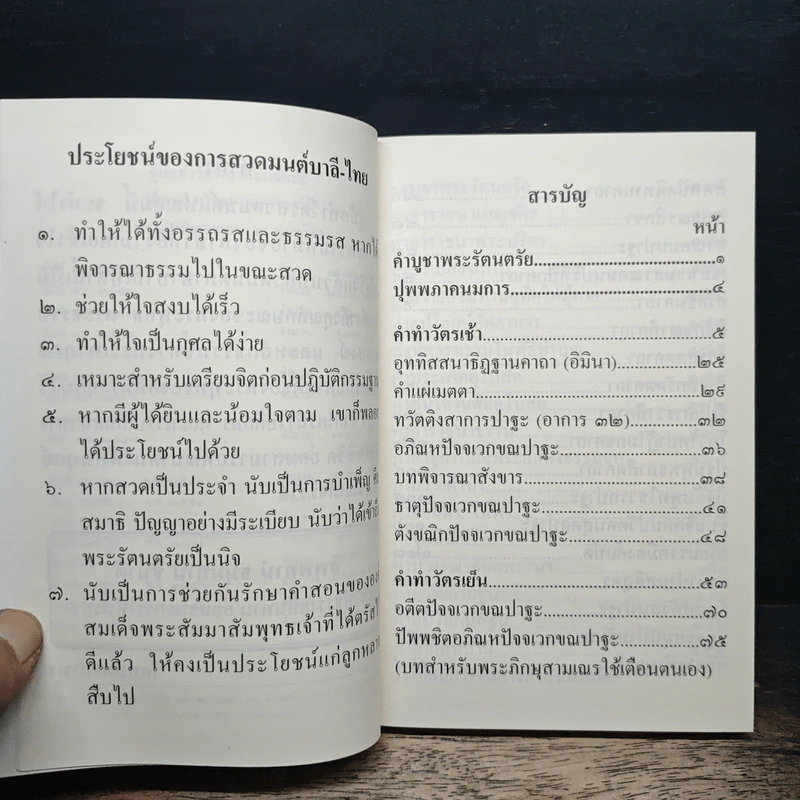 ประโยชน์ของการสวดมนต์บาลี-ไทย
๑. ทำให้ได้ทั้งอรรถรสและธรรมรส หากได้
พิจารณาธรรมไปในขณะสวด
๒. ช่วยให้ใจสงบได้เร็ว
๓. ทำให้ใจเป็นกุศลได้ง่าย
๔. เหมาะสำหรับเตรียมจิตก่อนปฏิบัติกรรมฐาน
๕. หากมีผู้ได้ยินและน้อมใจตาม เขาก็พลอย
ได้ประโยชน์ไปด้วย
๖. หากสวดเป็นประจำ นับเป็นการบำเพ็ญ
สมาธิ ปัญญาอย่างมีระเบียบ นับว่าได้เข้าถึง
พระรัตนตรัยเป็นนิจ
๗. นับเป็นการช่วยกันรักษาคำสอนขององค์
สมเด็จพระสัมมาสัมพุทธเจ้าที่ได้ตรัสไว้
ดีแล้ว ให้คงเป็นประโยชน์แก่ลูกหลาน
สืบไป
สารบัญ
หน้า
คำบูชาพระรัตนตรัย................................๑
ปุพพภาคนมการ....................................๔
คำทำวัตรเช้า........................................๕
อุททิสสนาธิฏฐานคาถา (อิมินา)................๒๕
คำแผ่เมตตา.........................................๒๙
ทวัตติงสาการปาฐะ (อาการ ๓๒)..............๓๒
อภิณหปัจจเวกขณปาฐะ..........................๓๖
บทพิจารณาสังขาร.................................๓๘
ธาตุปัจจเวกขณปาฐะ.............................๔๑
ตังขณิกปัจจเวกขณปาฐะ........................๔๘
คำทำวัตรเย็น........................................๕๓
อตีตปัจจเวกขณปาฐะ.............................๗๐
ปัพพชิตอภิณหปัจจเวกขณปาฐะ...............๗๕
(บทสำหรับพระภิกษุสามเณรใช้เตือนตนเอง)